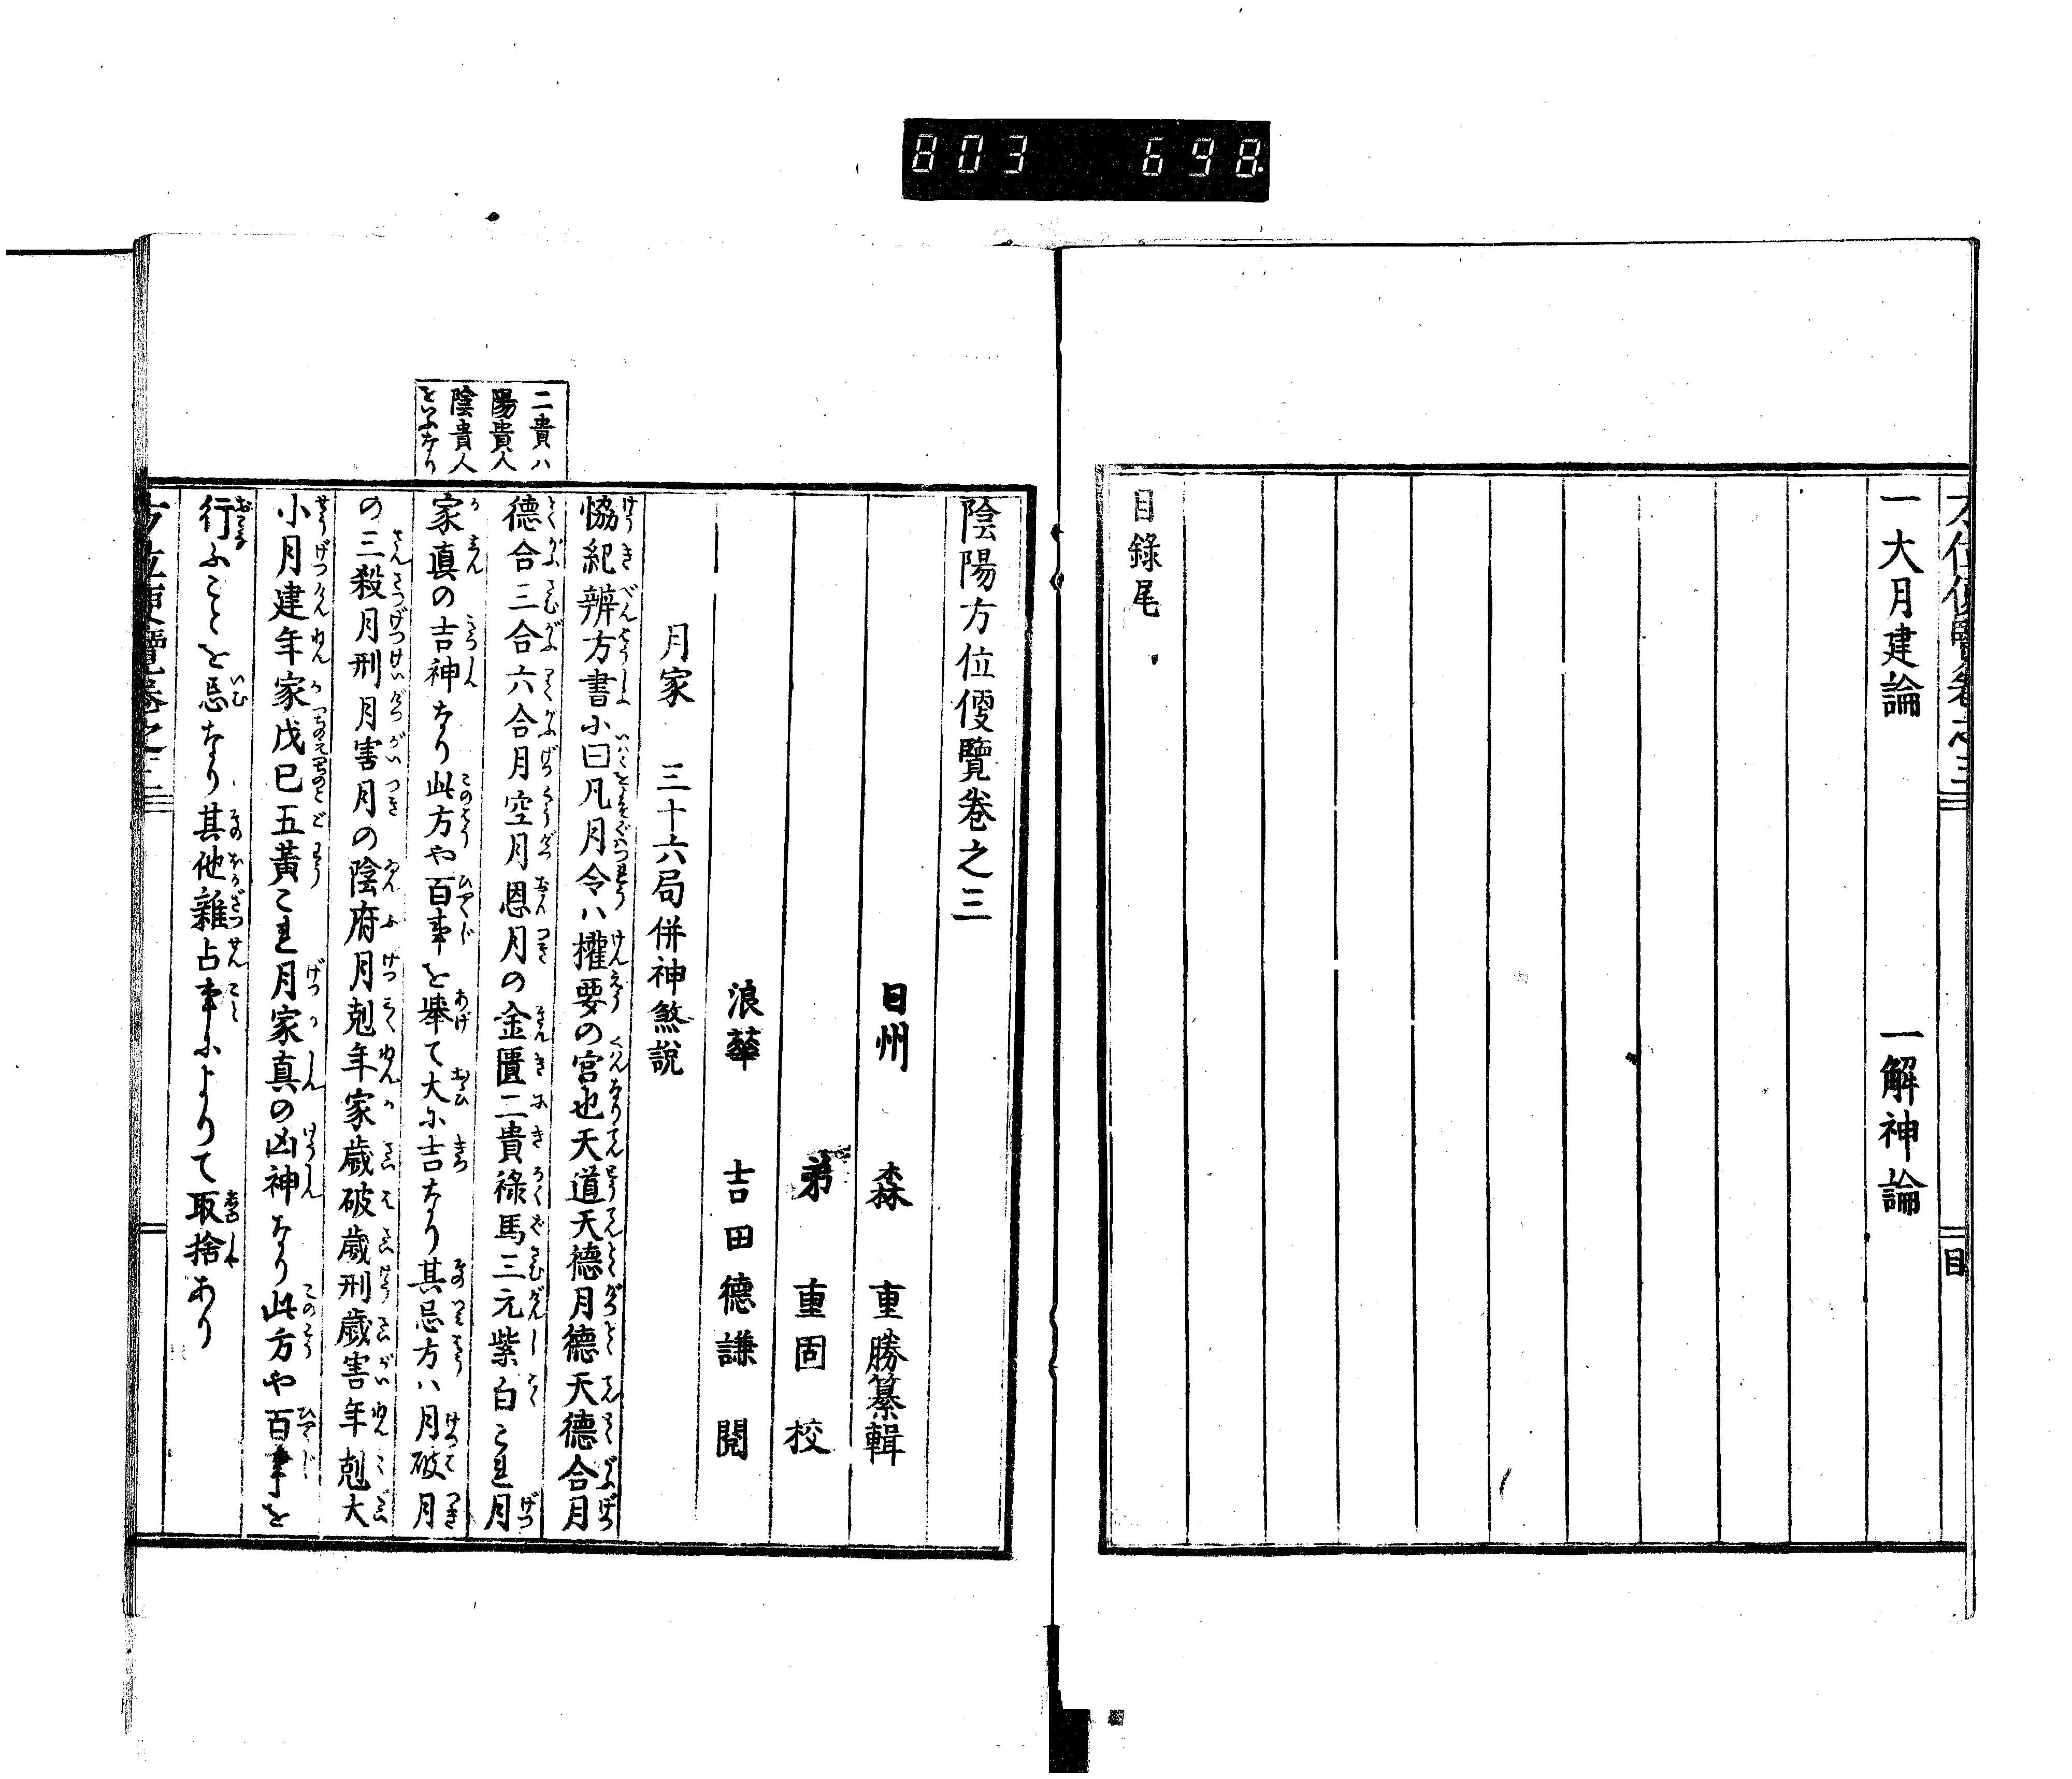 803 698
方位便覽卷之三 目
一大月建論 一解神論
目錄尾
陰陽方位便覽卷之三
日州 森 重勝纂輯
弟 重固 校
浪華 吉田德謙 閱
月家 三十六局併神煞說
恊紀辨方書小曰凡月令ハ權要の宮也天道天德月德天德合月
德合三合六合月空月恩月の金匱二貴祿馬三元紫白これ月
家真の吉神なり此方や百事を舉て大に吉なり其忌方ハ月破月
の三殺月刑月害月の陰府月剋年家歲破歲刑歲害年剋大
小月建年家戊巳五黃これ月家真の凶神なり此方や百事を
行ふことを忌なり其他雜占事によりて取捨あり
二貴ハ
陽貴人
陰貴人
といふなり
方位便覽卷之三